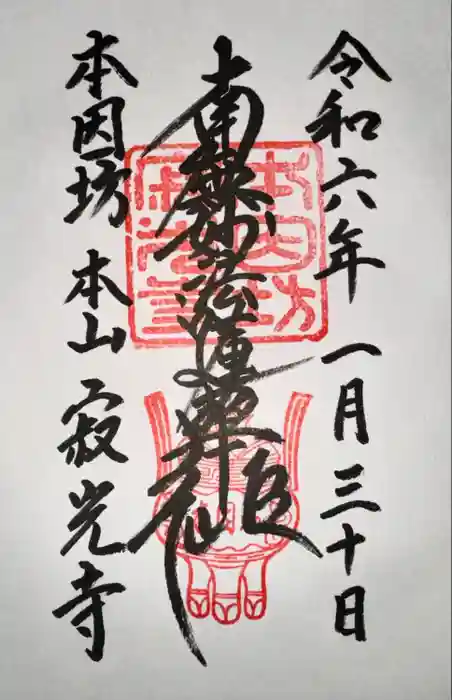 令和六年 一月三十日
南無妙法蓮華
本因坊 本山 寂光寺